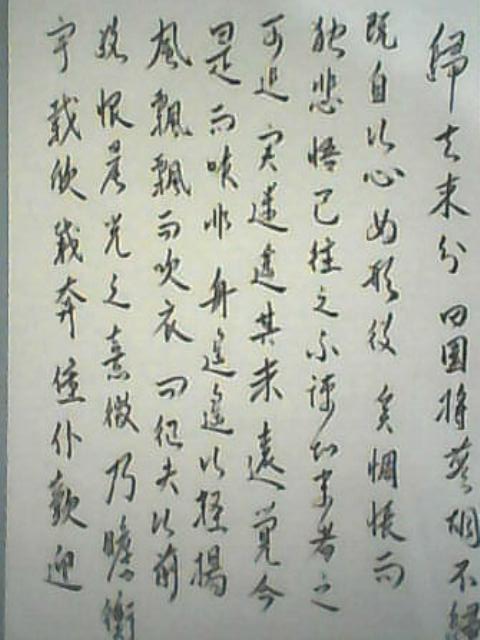 歸去来兮 田園將蕪胡不歸
既自以心为形役 奚惆悵而
獨悲 悟已往之不諫 知来者之
可追 实迷途其未遠 覺今
是而昨非 舟遙遙以輕揚
風飄飄而吹衣 问征夫以前
路 恨晨光之熹微 乃瞻衡
宇 载欣载奔 僮仆歡迎